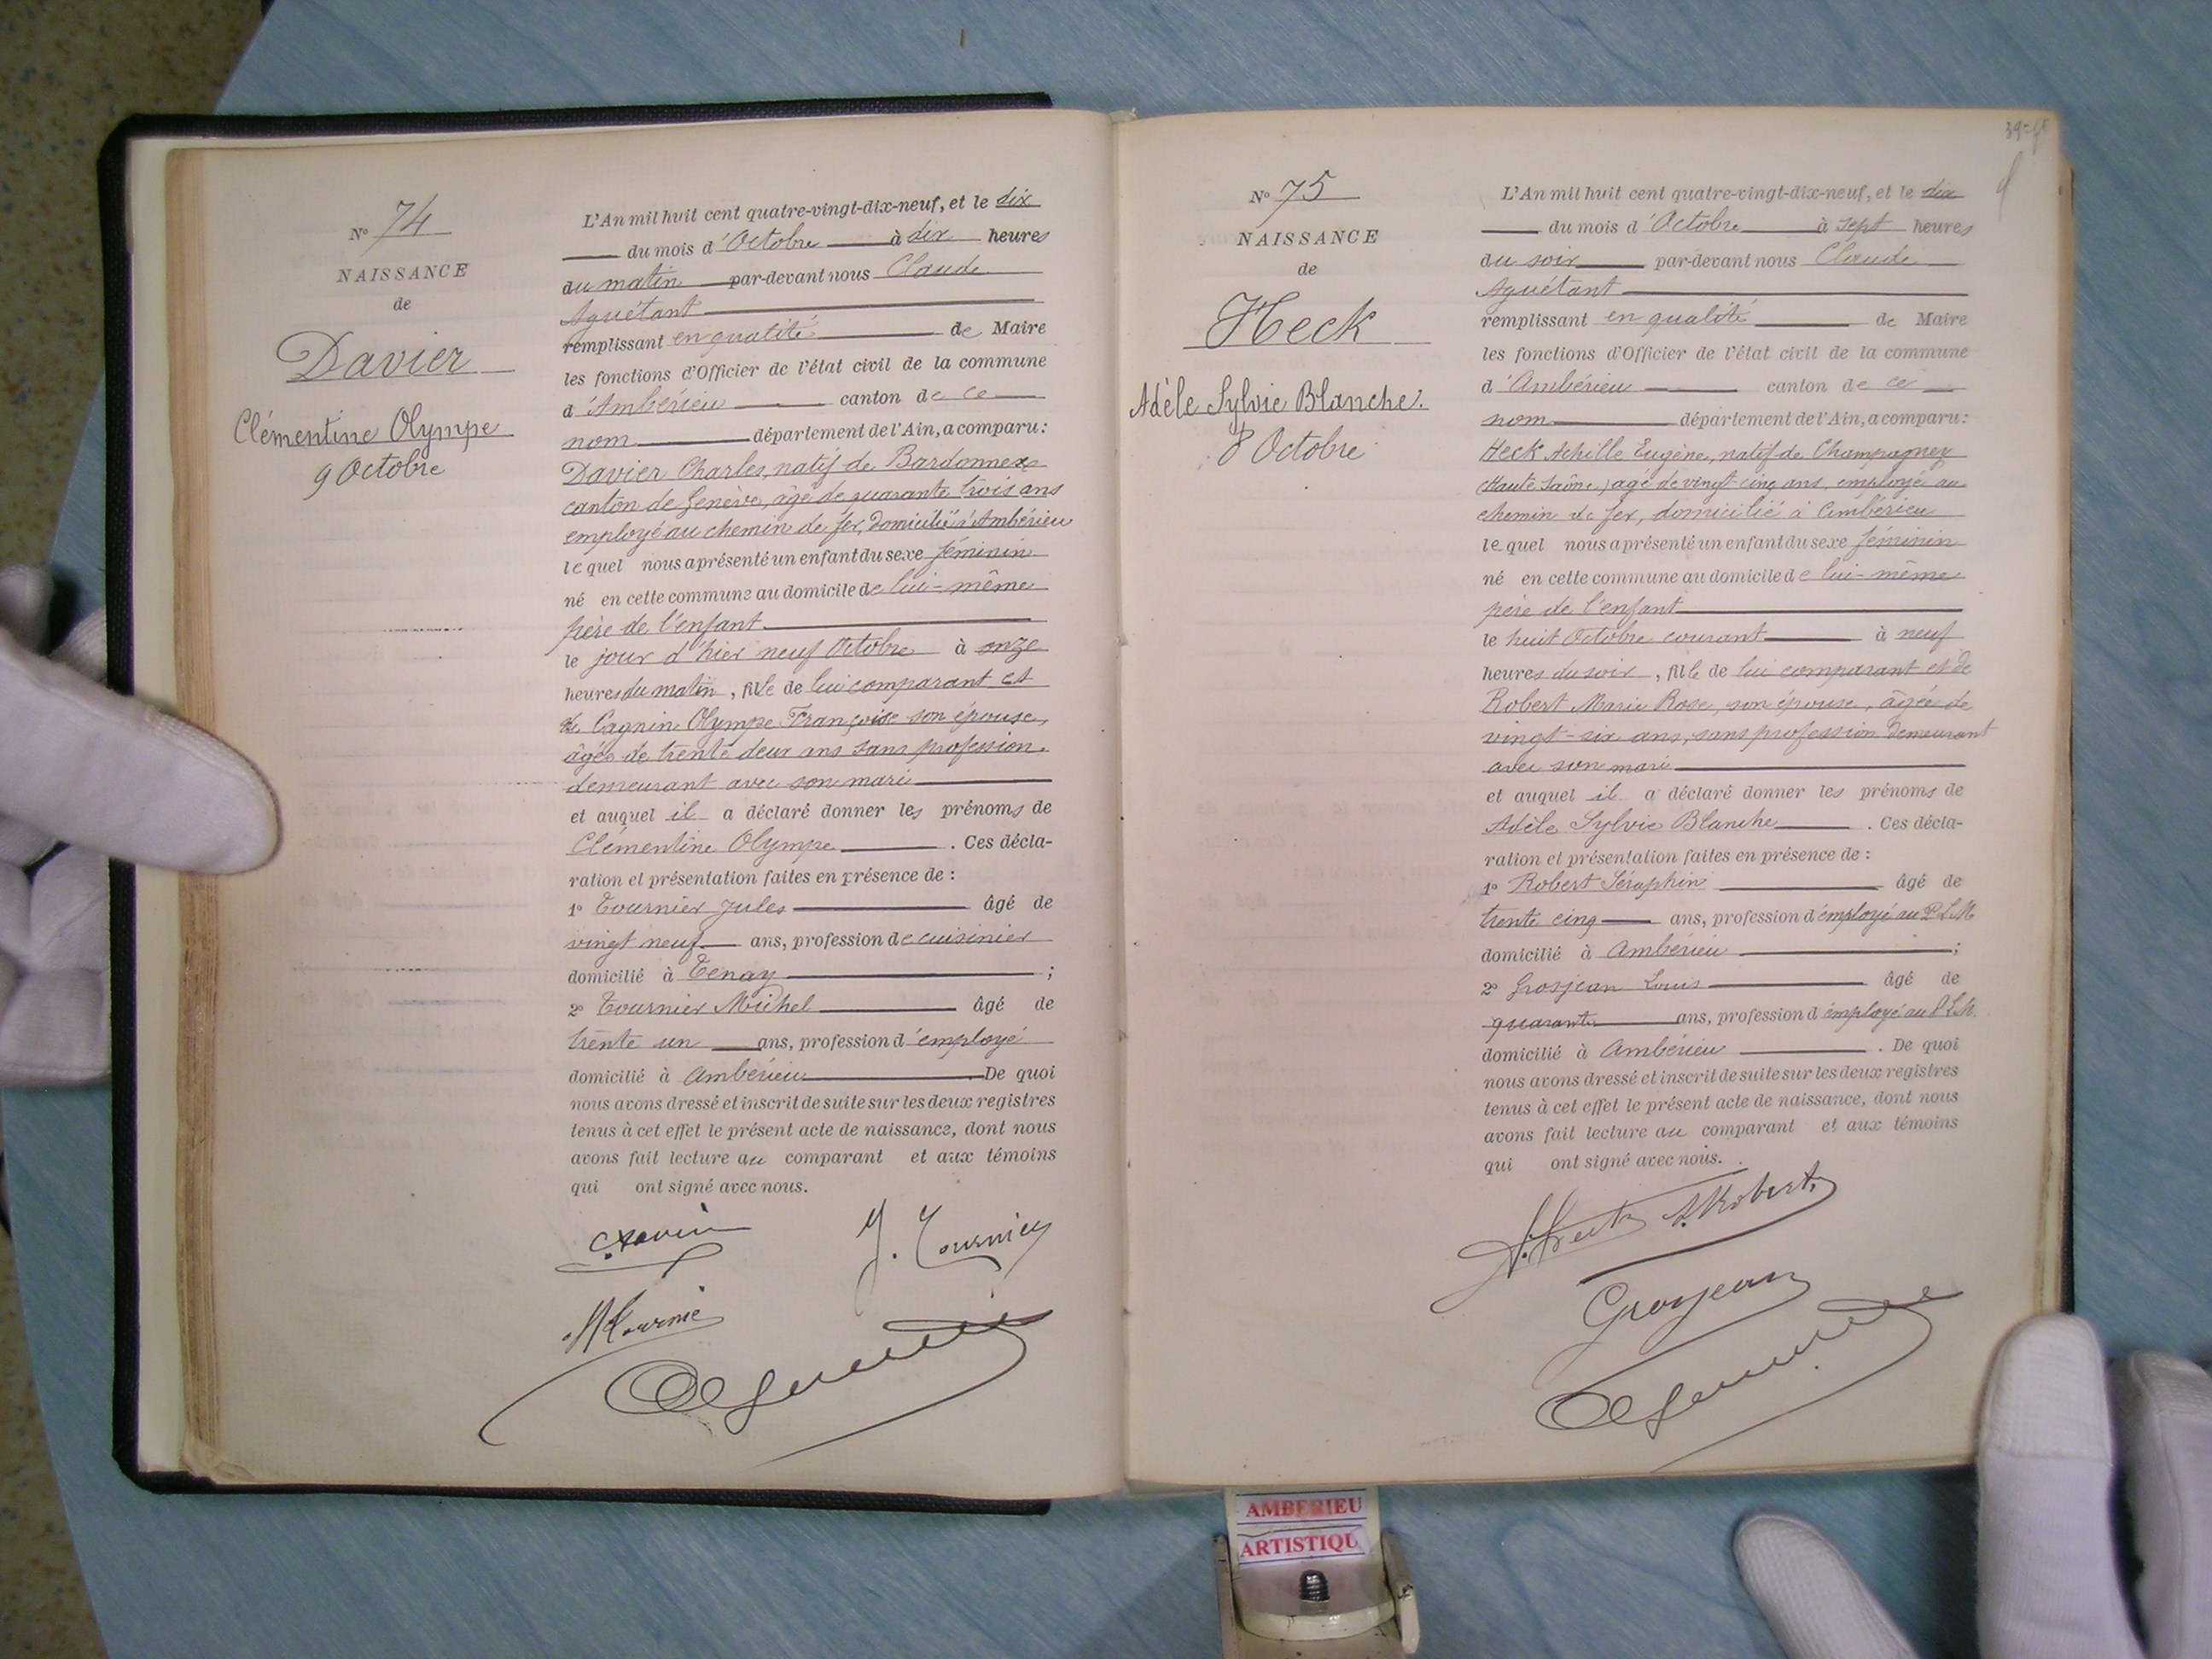 N° 74
NAISSANCE
de
Davier
Clémentine Olympe
9 Octobre
L'An mil huit cent quatre-vingt-dix-neuf, et le dix
du mois d'Octobre à dix heures
du matin par-devant nous Claude
Aguétant
remplissant en qualité de Maire
les fonctions d'Officier de l'état civil de la commune
d'Ambérieu canton de ce
nom département de l'Ain, a comparu :
Davier Charles, natif de Bardonnex
canton de Genève, âgé de quarante trois ans
employé au chemin de fer, domicilié à Ambérieu
lequel nous a présenté un enfant du sexe féminin
né en cette commune au domicile de lui-même
père de l'enfant
le jour d'hier neuf Octobre à onze
heures du matin, fille de lui comparant et
de Cagnin Olympe Françoise son épouse,
âgée de trente deux ans sans profession.
demeurant avec son mari
et auquel il a déclaré donner les prénoms de
Clémentine Olympe. Ces décla-
ration et présentation faites en présence de :
1° Tournier Jules âgé de
vingt neuf ans, profession de cuisinier
domicilié à Tenay ;
2° Tournier Michel âgé de
trente un ans, profession d'employé
domicilié à Ambérieu De quoi
nous avons dressé et inscrit de suite sur les deux registres
tenus à cet effet le présent acte de naissance, dont nous
avons fait lecture au comparant et aux témoins
qui ont signé avec nous.
C. Davier J. Tournier
M Tournie
N° 75
NAISSANCE
de
Heck
Adèle Sylvie Blanche.
8 Octobre
L'An mil huit cent quatre-vingt-dix-neuf, et le dix
du mois d'Octobre à sept heures
du soir par-devant nous Claude
Aguétant
remplissant en qualité de Maire
les fonctions d'Officier de l'état civil de la commune
d'Ambérieu canton de ce
nom département de l'Ain, a comparu :
Heck Achille Eugène, natif de Champagney
(Haute Saône) âgé de vingt cinq ans, employé au
chemin de fer, domicilié à Ambérieu
lequel nous a présenté un enfant du sexe féminin
né en cette commune au domicile de lui-même
père de l'enfant
le huit Octobre courant à neuf
heures du soir, fille de lui comparant et de
Robert Marie Rose, son épouse, âgée de
vingt-six ans, sans profession demeurant
avec son mari
et auquel il a déclaré donner les prénoms de
Adèle Sylvie Blanche. Ces décla-
ration et présentation faites en présence de :
1° Robert Séraphin âgé de
trente cinq ans, profession d'employé au P.L.M.
domicilié à Ambérieu ;
2° Grosjean Louis âgé de
quarante ans, profession d'employé au P.L.M.
domicilié à Ambérieu. De quoi
nous avons dressé et inscrit de suite sur les deux registres
tenus à cet effet le présent acte de naissance, dont nous
avons fait lecture au comparant et aux témoins
qui ont signé avec nous.
S. Robert
Grosjean
AMBERIEU
ARTISTIQU